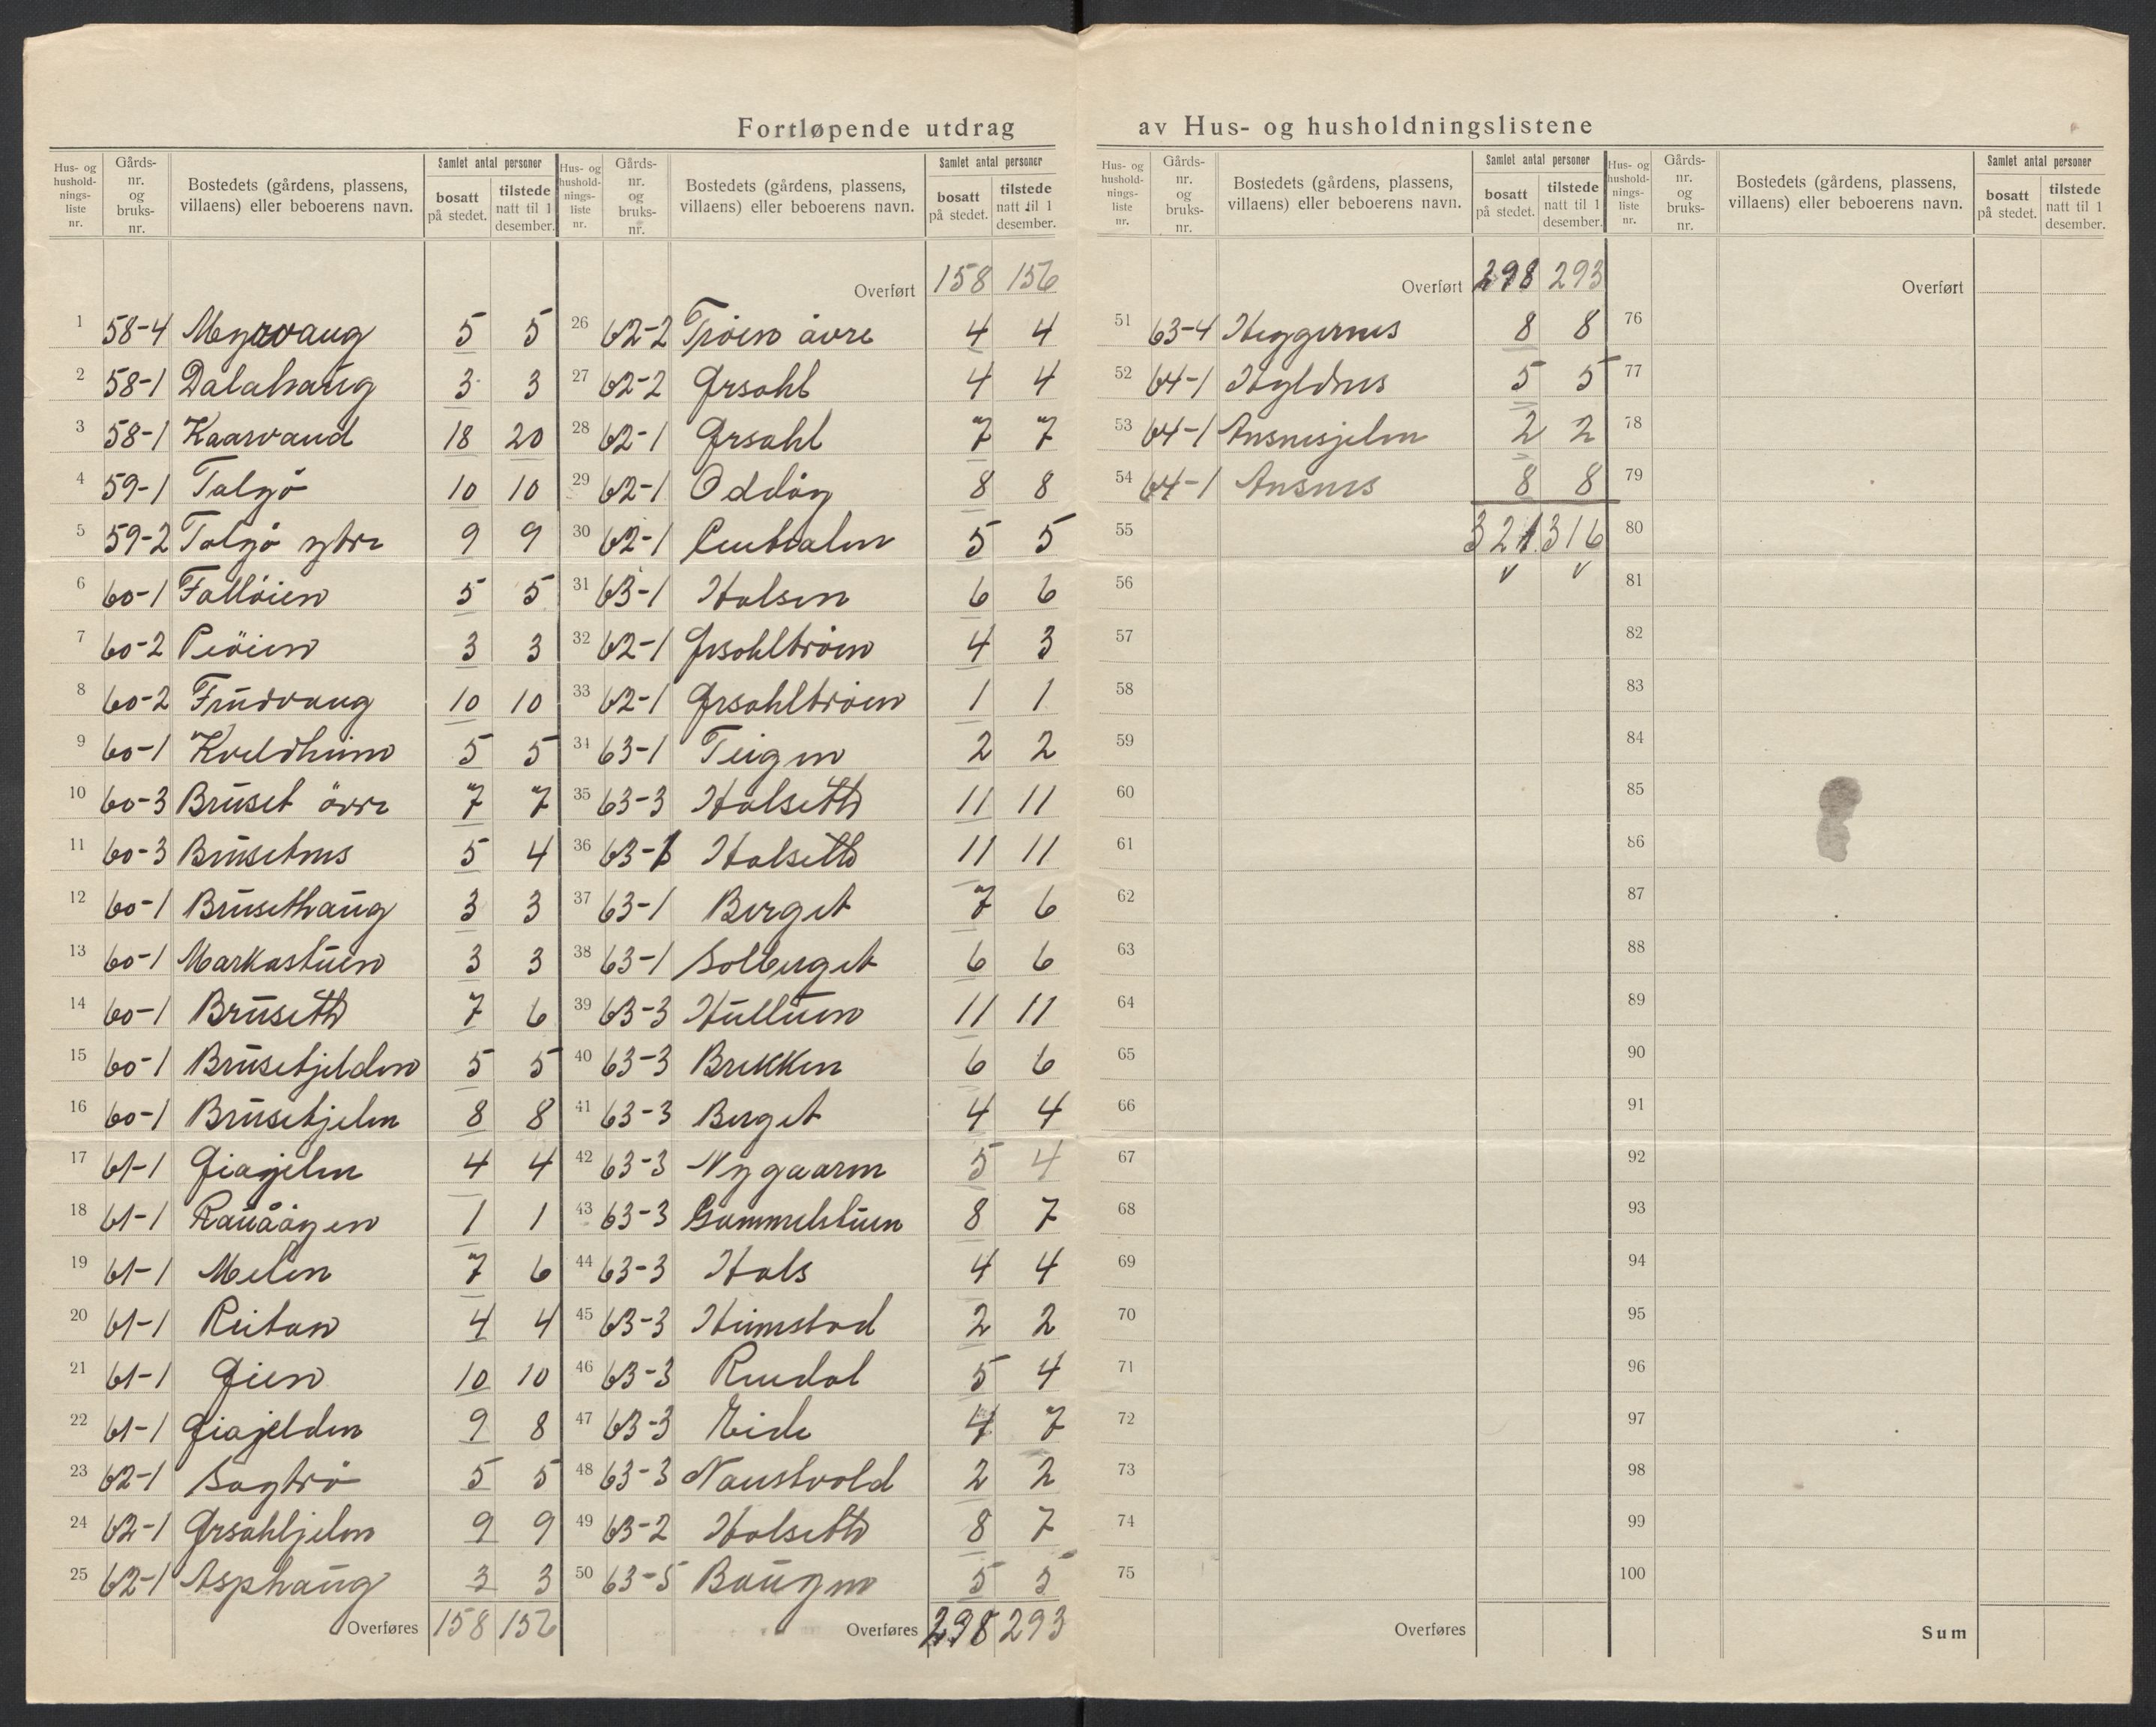 Fortløpende utdrag av Hus- og husholdningslistene
Hus- og husholdnings-liste nr. Gårds-nr. og bruks-nr. Bostedets (gårdens, plassens, villaens) eller beboerens navn. Samlet antal personer bosatt på stedet. tilstede natt til 1 desember.
1 58-4 Myrvang 5 5
2 58-1 Dalahaug 3 3
3 58-1 Kaarvand 18 20
4 59-1 Talgö 10 10
5 59-2 Talgö ytre 9 9
6 60-1 Fallöien 5 5
7 60-2 Peöien 3 3
8 60-2 Frudvang 10 10
9 60-1 Kveldheim 5 5
10 60-3 Bruset övre 7 7
11 60-3 Brusetnes 5 4
12 60-1 Brusethaug 3 3
13 60-1 Markastuen 3 3
14 60-1 Bruseth 7 6
15 60-1 Brusetjelden 5 5
16 60-1 Brusetjelen 8 8
17 61-1 Giajelen 4 4
18 61-1 Rauåöyen 1 1
19 61-1 Melen 7 6
20 61-1 Reitan 4 4
21 61-1 Gien 10 10
22 61-1 Giajelden 9 8
23 62-1 Sagtrö 5 5
24 62-1 Grsahljelen 9 9
25 62-1 Asphaug 3 3
Overføres 158 156
Hus- og husholdnings-liste nr. Gårds-nr. og bruks-nr. Bostedets (gårdens, plassens, villaens) eller beboerens navn. Samlet antal personer bosatt på stedet. tilstede natt til 1 desember.
Overført 158 156
26 62-2 Tröen övre 4 4
27 62-2 Grsahl 4 4
28 62-1 Grsahl 7 7
29 62-1 Oddöy 8 8
30 62-1 Centralen 5 5
31 63-1 Halsen 6 6
32 62-1 Grsahltröen 4 3
33 62-1 Grsahltröen 1 1
34 63-1 Teigen 2 2
35 63-3 Halseth 11 11
36 63-1 Halseth 11 11
37 63-1 Berget 7 6
38 63-1 Solberget 6 6
39 63-3 Hulluen 11 11
40 63-3 Brekken 6 6
41 63-3 Berget 4 4
42 63-3 Nygaaren 5 4
43 63-3 Gammelstuen 8 7
44 63-3 Hals 4 4
45 63-3 Heimstad 2 2
46 63-3 Reudal 5 4
47 63-3 Eide 4 7
48 63-3 Naustvold 2 2
49 63-2 Halseth 8 7
50 63-5 Baugen 5 5
Overføres 298 293
Hus- og husholdnings-liste nr. Gårds-nr. og bruks-nr. Bostedets (gårdens, plassens, villaens) eller beboerens navn. Samlet antal personer bosatt på stedet. tilstede natt til 1 desember.
Overført 298 293
51 63-4 Heggernes 8 8
52 64-1 Hyldnes 5 5
53 64-1 Ansnesjelen 2 2
54 64-1 Ansnes 8 8
55 321 316
56
57
58
59
60
61
62
63
64
65
66
67
68
69
70
71
72
73
74
75
Overføres
Hus- og hushold-nings-liste nr. Gårds-nr. og bruks-nr. Bostedets (gårdens, plassens, villaens) eller beboerens navn. Samlet antal personer bosatt på stedet. tilstede natt til 1 desember.
Overført
76
77
78
79
80
81
82
83
84
85
86
87
88
89
90
91
92
93
94
95
96
97
98
99
100
Sum